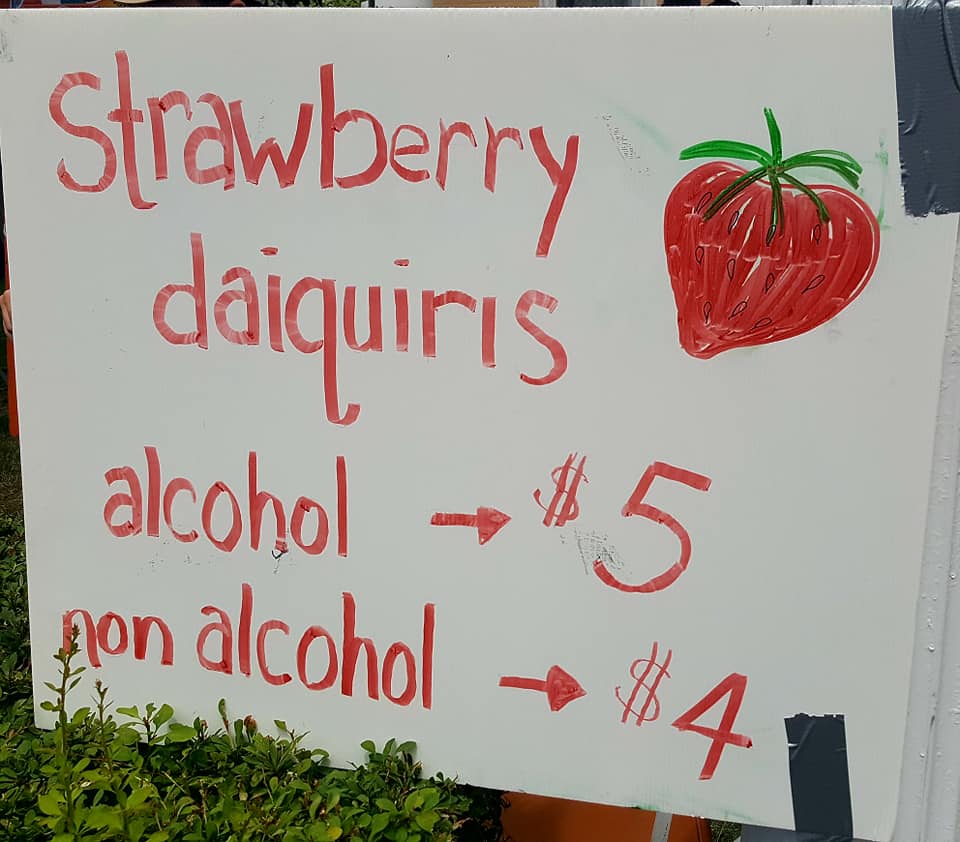 Strawberry
daiquiris
alcohol → $5
non alcohol → $4